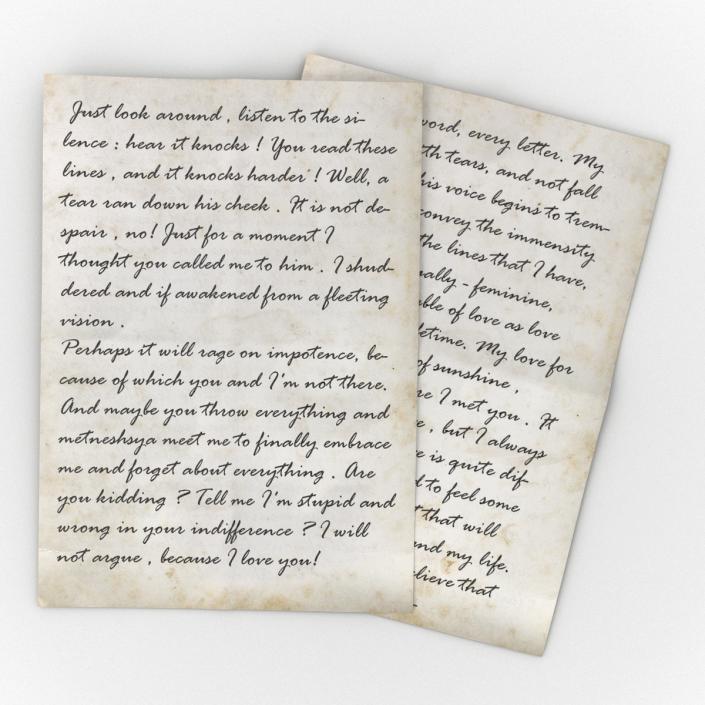 Just look around , listen to the si-
lence : hear it knocks ! You read these
lines , and it knocks harder ! Well, a
tear ran down his cheek . It is not de-
spair , no! Just for a moment I
thought you called me to him . I shud-
dered and if awakened from a fleeting
vision .
Perhaps it will rage on impotence, be-
cause of which you and I'm not there.
And maybe you throw everything and
metneshsya meet me to finally embrace
me and forget about everything . Are
you kidding ? Tell me I'm stupid and
wrong in your indifference ? I will
not argue , because I love you!
word, every letter. My
tears, and not fall
his voice begins to trem-
convey the immensity
the lines that I have,
- feminine,
of love as love
My love for
of sunshine ,
I met you . It
, but I always
is quite dif-
to feel some
that will
and my life.
that